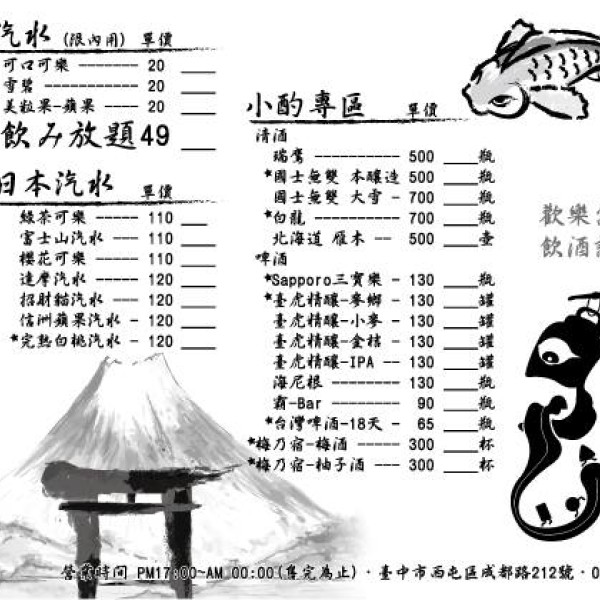 汽水 (限內用) 單價
可口可樂 ------- 20 ___
雪碧 ----------- 20 ___
美粒果-蘋果 ---- 20 ___
飲み放題49 ___
日本汽水 單價
綠茶可樂 ----- 110 ___
富士山汽水 --- 110 ___
櫻花可樂 ----- 110 ___
達摩汽水 ----- 120 ___
招財貓汽水 --- 120 ___
信洲蘋果汽水 - 120 ___
*完熟白桃汽水 -- 120 ___
小酌專區 單價
清酒
瑞鷹 ---------- 500 ____瓶
*國士無雙 本釀造 500 ____瓶
國士無雙 大雪 - 700 ____瓶
*白龍 ---------- 700 ____瓶
北海道 雁木 -- 500 ____壺
啤酒
*Sapporo三寶樂 - 130 ____瓶
*臺虎精釀-麥鄉 - 130 ____罐
臺虎精釀-小麥 - 130 ____罐
臺虎精釀-金桔 - 130 ____罐
臺虎精釀-IPA -- 130 ____罐
海尼根 -------- 130 ____瓶
霸-Bar -------- 90 ____瓶
*台灣啤酒-18天 - 65 ____瓶
*梅乃宿-梅酒 ----- 300 ____杯
*梅乃宿-柚子酒 --- 300 ____杯
歡樂
飲酒
營業時間 PM17:00~AM 00:00(售完為止)·臺中市西屯區成都路212號·0